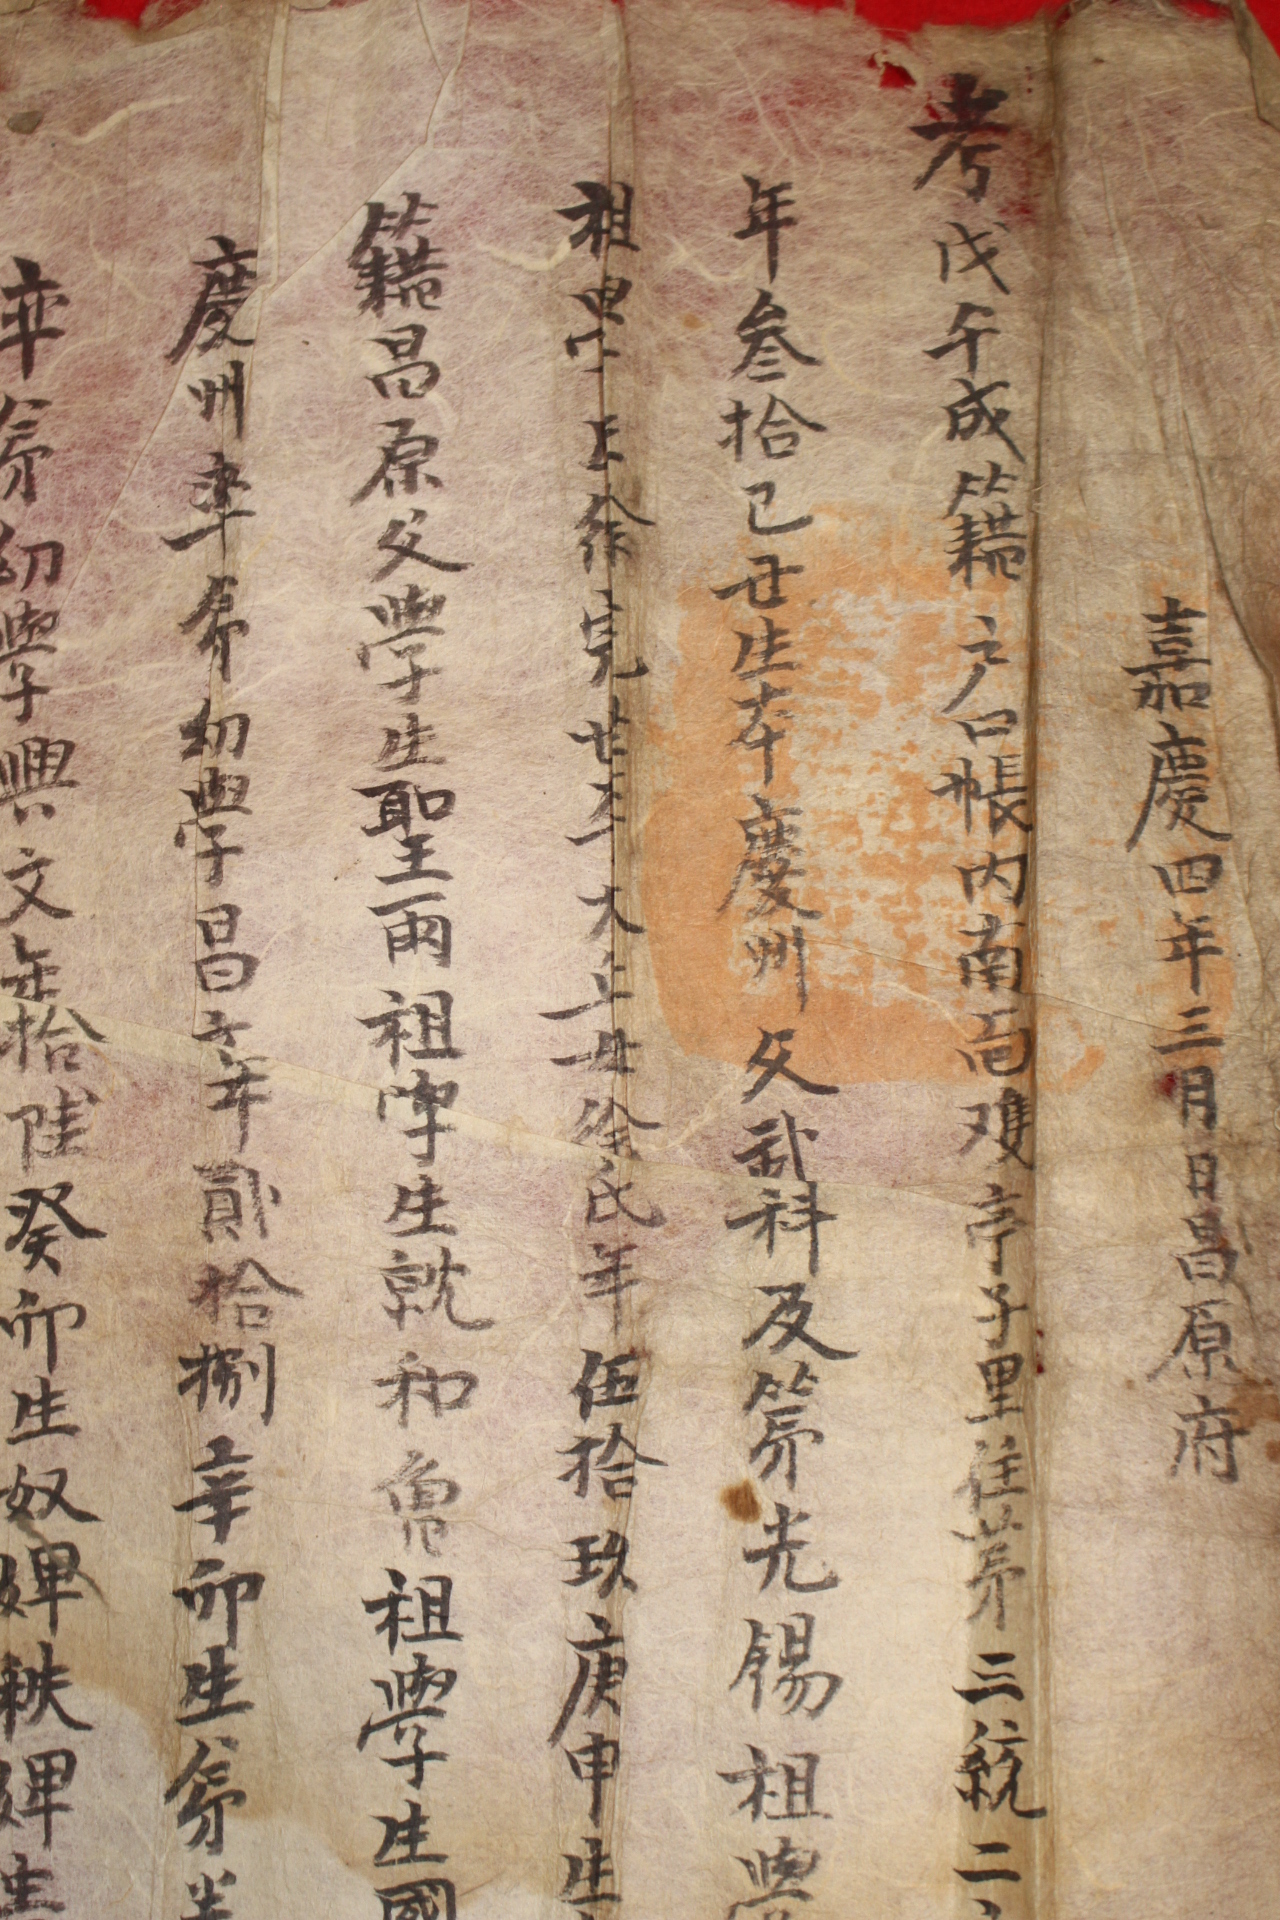 嘉慶四年三月日昌原府
考戊午成籍戶口帳內南面难亭子里住第三統二
年叄拾己丑生本慶州父武科及第光錫祖學
祖學生徐完 大丘母徐氏年伍拾玖庚申生
籍昌原父學生聖兩祖學生就和曾祖學生國
慶州率弟幼學昌文年貳拾捌辛卯生弟
率弟幼學興文年拾陸癸卯生奴婢秩婢生